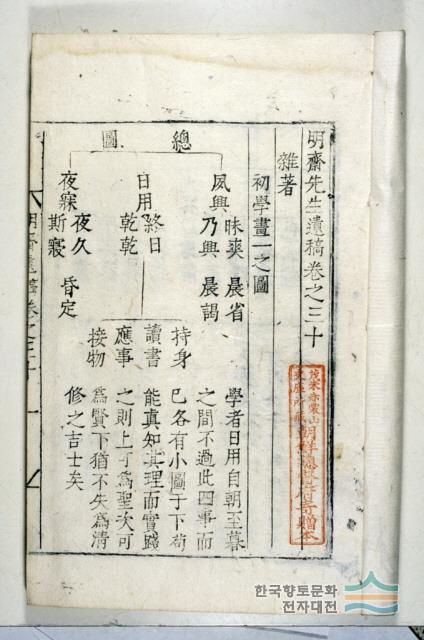 明齋先生遺稿卷之三十
雜著
初學畫一之圖
總圖
夙興
昧爽 晨省
乃興 晨謁
日用
終日
乾乾
夜寐
夜久 昏定
斯寢
持身
讀書
應事
接物
學者日用自朝至暮
之間不過此四事而
已各有小圖于下苟
能真知其理而實踐
之則上可爲聖次可
爲賢下猶不失爲淸
修之吉士矣
明齋遺稿卷之三十
한국향토문화
전자대전